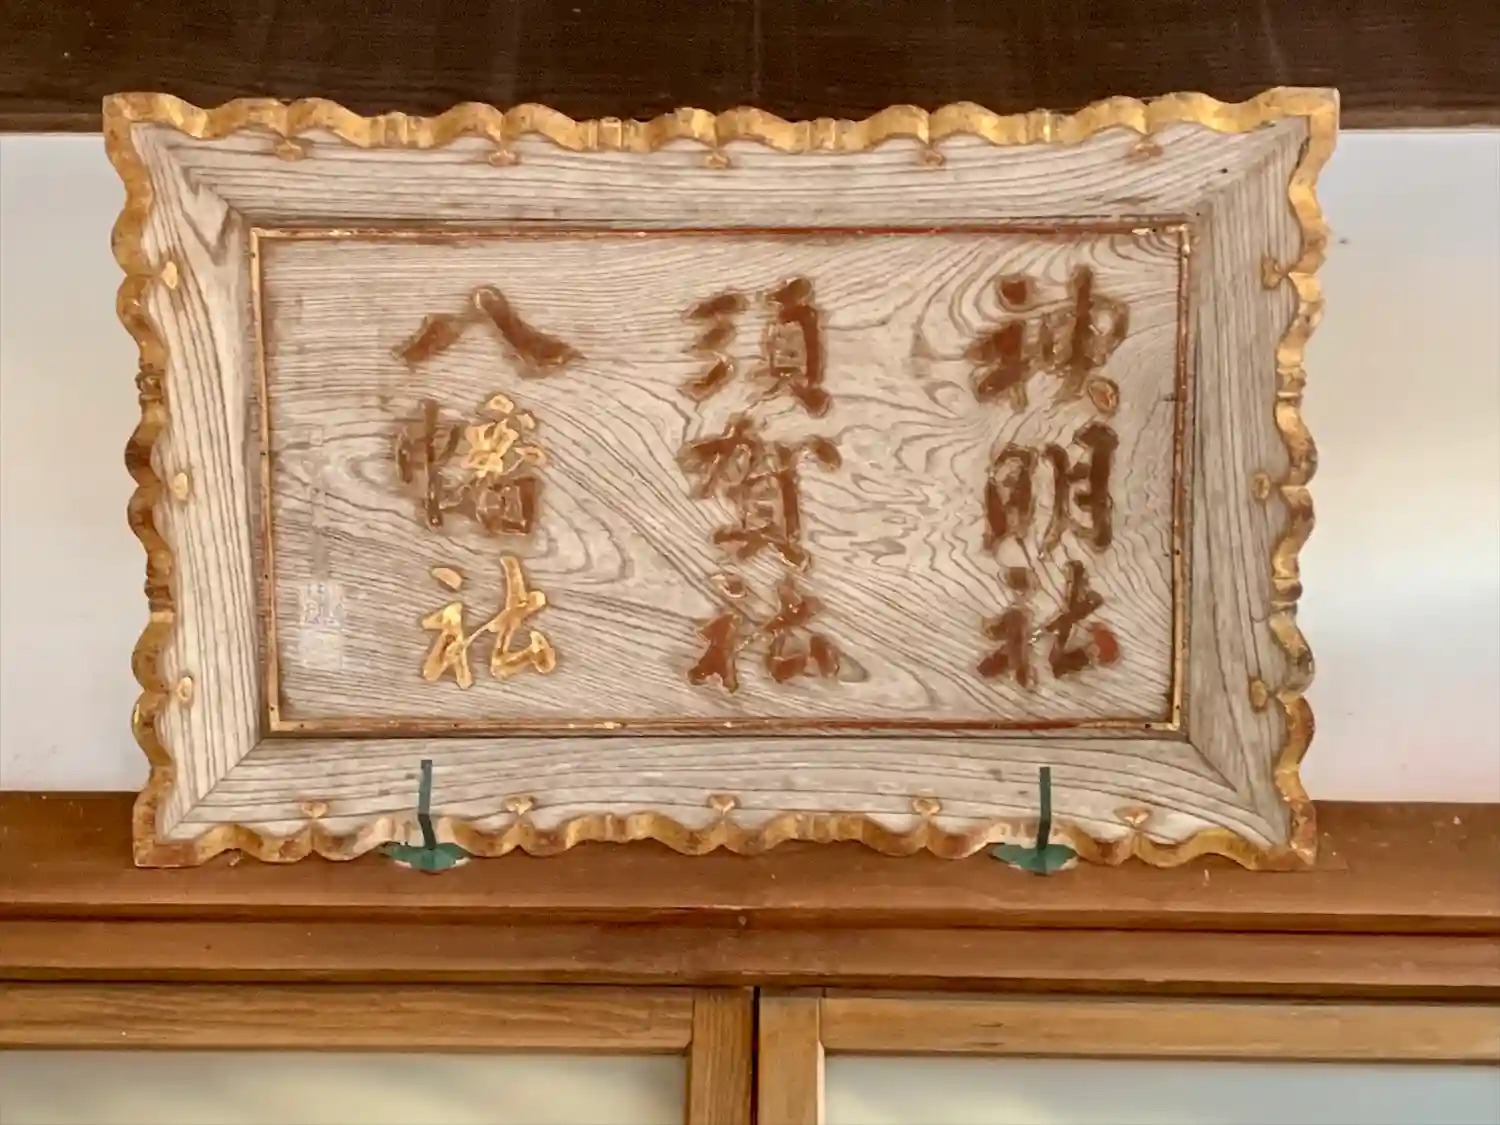 神明社
須賀社
八幡社